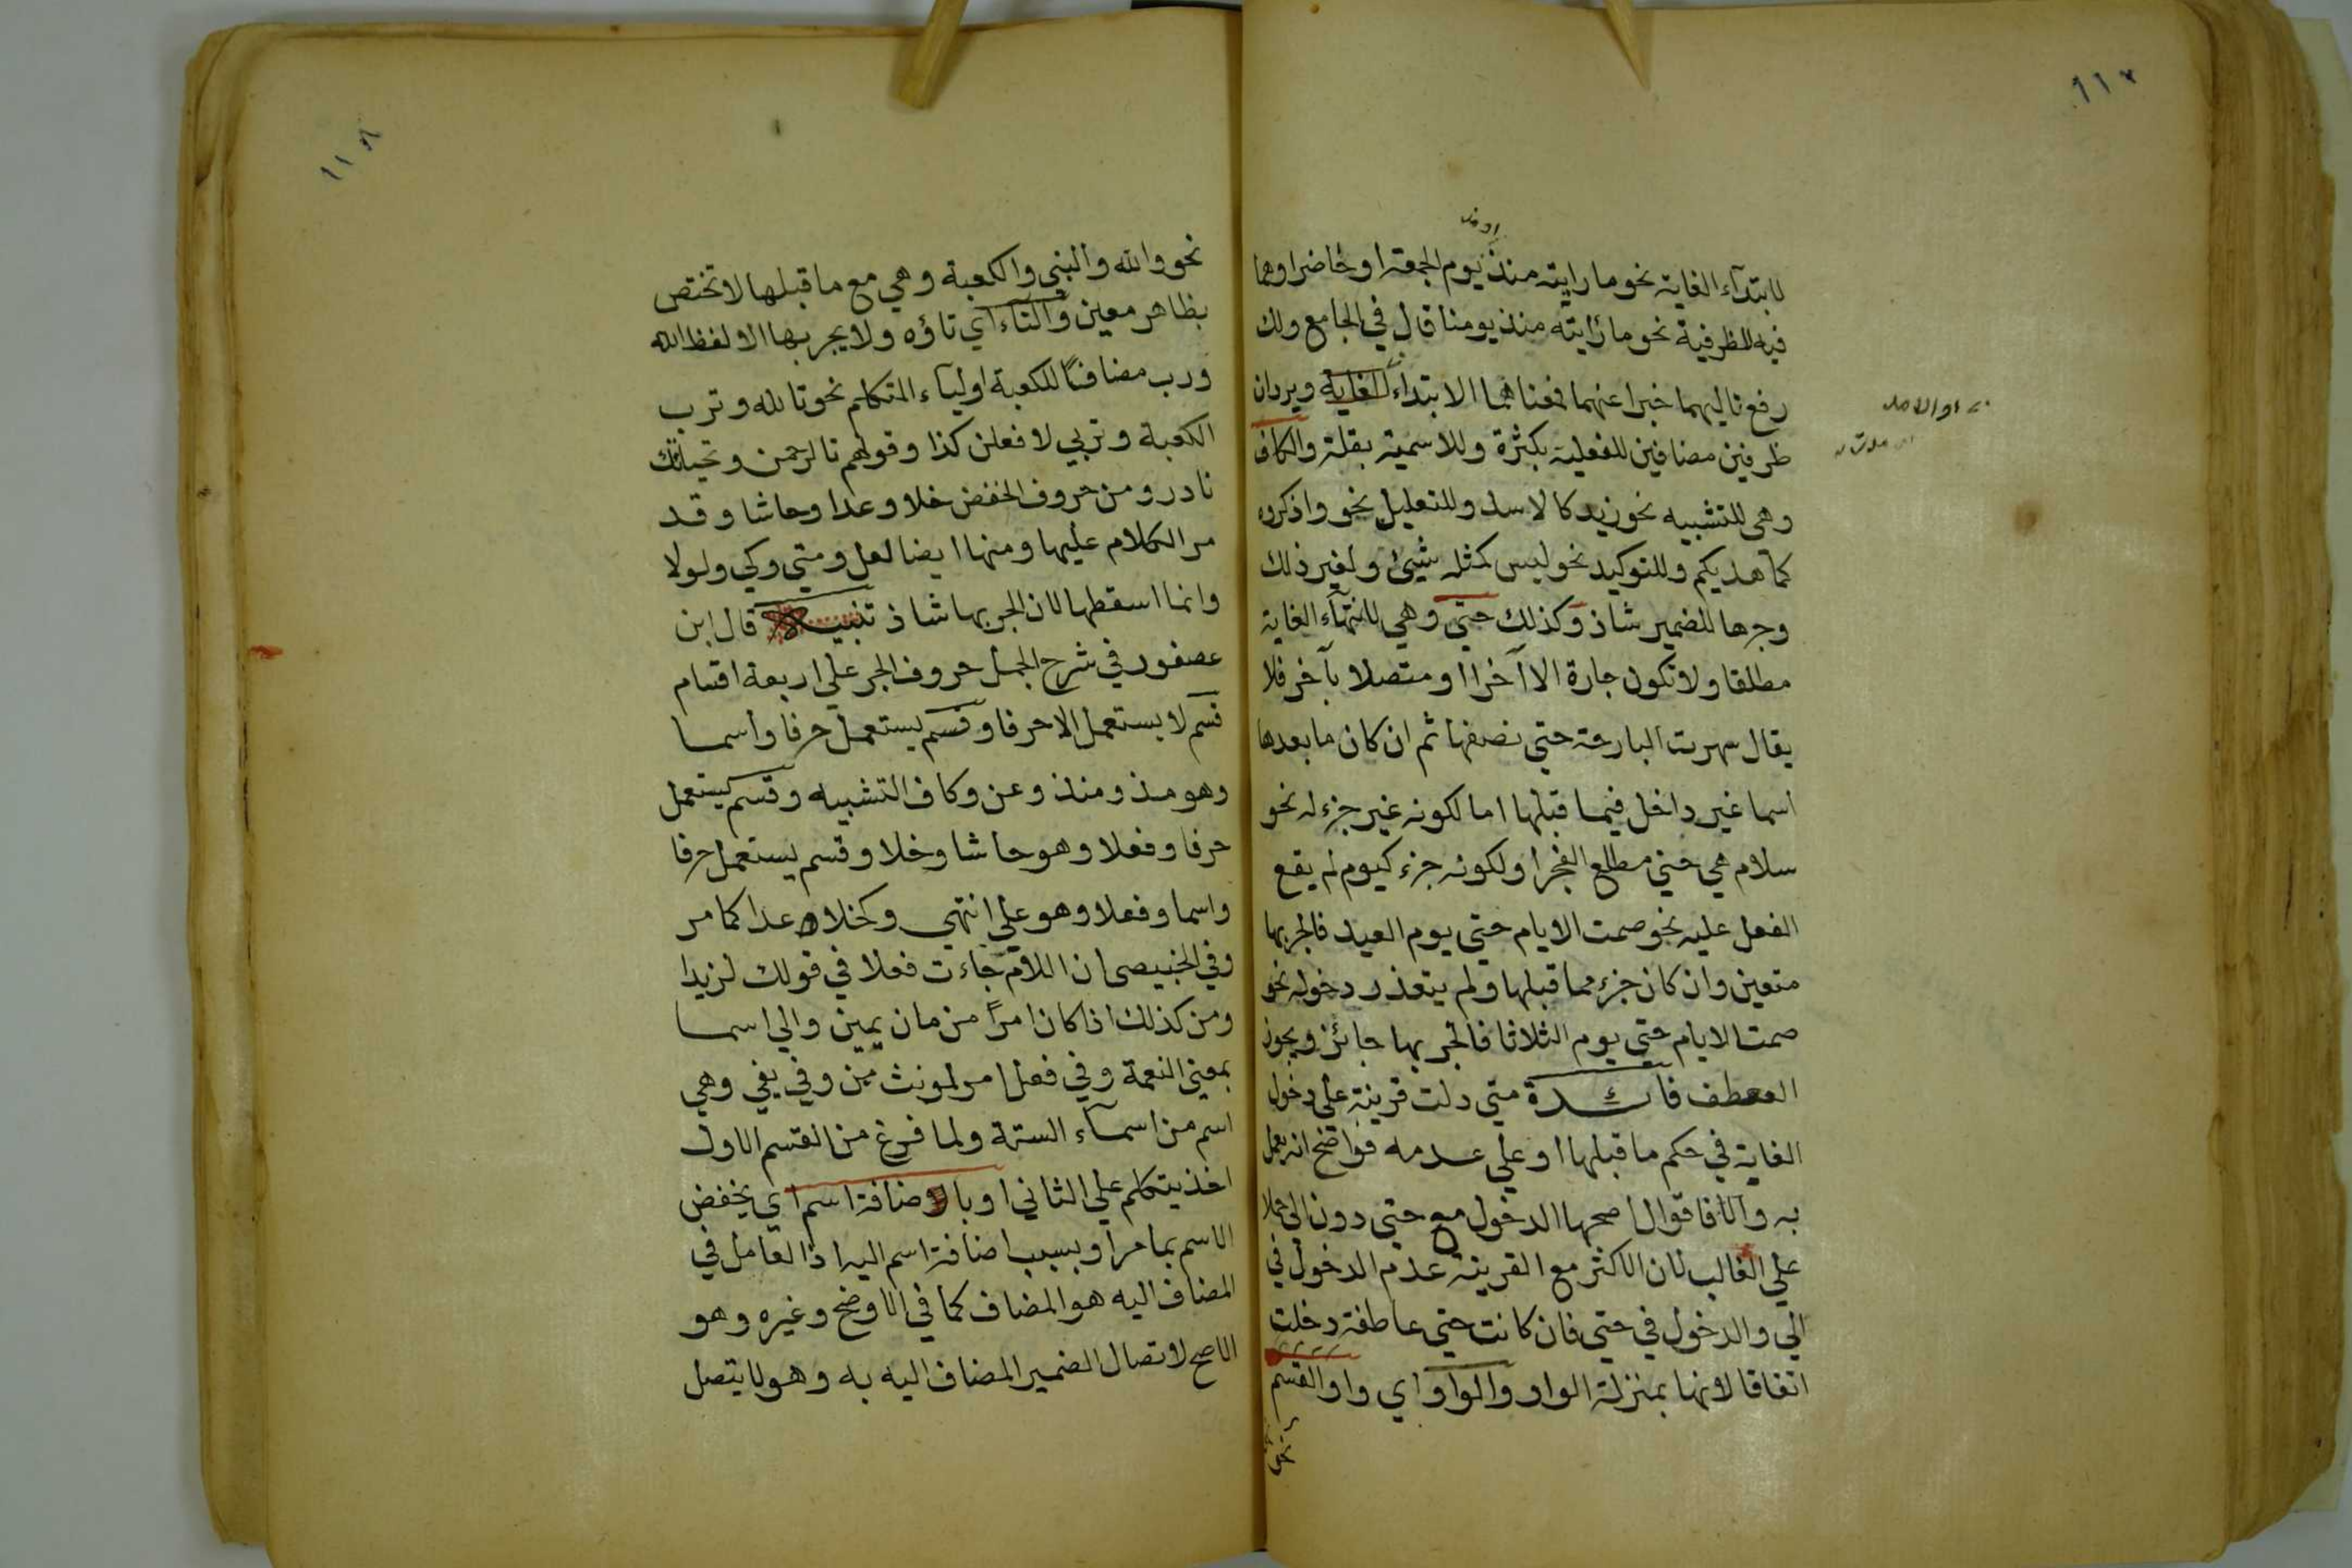 ١١٧
او مذ
لابتدآء الغاية نحو ما رايته منذ يوم الجمعة او حاضرا وهما
فيه للظرفية نحو ما رايته منذ يومنا قال في الجامع ولك
رفع تاليهما خبرا عنهما فمعناهما الابتداء للغاية ويردان
ظرفين مضافين للفعلية بكثرة وللاسمية بقلة والكاف
وهى للتشبيه نحو زيد كالاسد وللتعليل نحو واذكروه
كما هديكم وللتوكيد نحو ليس كمثله شيئ ولغير ذلك
وجرها للضمير شاذ وكذلك حتي وهي للانتهآء الغاية
مطلقا ولا تكون جارة الا آخرا او متصلا بآخر فلا
يقال سهرت البارحة حتي نصفها ثم ان كان ما بعدها
اسما غير داخل فيما قبلها اما لكونه غير جزء له نحو
سلام هي حتي مطلع الفجر او لكونه جزء كيوم لم يقع
الفعل عليه نحو صمت الايام حتي يوم العيد فالجر بها
متعين وان كان جزء مما قبلها ولم يتعذر دخوله نحو
صمت الايام حتي يوم الثلاثا فالجر بها جائز ويجوز
العطف فائدة متي دلت قرينة علي دخول
الغاية في حكم ما قبلها او علي عدمه فواضح انه يعمل
به والا فاقوال اصحها الدخول مع حتي دون الي حملا
علي الغالب لان الاكثر مع القرينة عدم الدخول في
الي والدخول في حتي فان كانت حتي عاطفة دخلت
اتفاقا لانها بمنزلة الواو والواو اي واو القسم
نحو
١١٨
نحو والله والنبي والكعبة وهي مع ما قبلها لا تختص
بظاهر معين والتاء اي تاؤه ولا يجر بها الا لفظ الله
ورب مضافا للكعبة او ليآء المتكلم نحو تالله وترب
الكعبة وتربي لافعلن كذا وقولهم تالرحمن وتحياتك
نادر ومن حروف الخفض خلا وعدا وحاشا وقد
مر الكلام عليها ومنها ايضا لعل ومتي وكي ولولا
وانما اسقطها لان الجر بها شاذ تنبيه قال ابن
عصفور في شرح الجمل حروف الجر علي اربعة اقسام
قسم لا يستعمل الا حرفا وقسم يستعمل حرفا وأسما
وهو مذ ومنذ وعن وكاف التشبيه وقسم يستعمل
حرفا وفعلا وهو حاشا وخلا وقسم يستعمل حرفا
واسما وفعلا وهو علي انتهي وكخلا عدا كما مر
وفي الخبيصى ان اللام جاءت فعلا في قولك لزيدا
ومن كذلك اذا كان امرًا من مان يمين والي اسما
بمعني النعمة وفي فعل امر لمونث من وفي يفي وهي
اسم من اسمآء الستة ولما فرغ من القسم الاول
اخذ يتكلم علي الثاني او بالاضافة اسم اي يخفض
الاسم بما مر او بسبب اضافة اسم اليه اذ العامل في
المضاف اليه هو المضاف كما في الاوضح وغيره وهو
الاصح لاتصال الضمير المضاف اليه به وهو لا يتصل